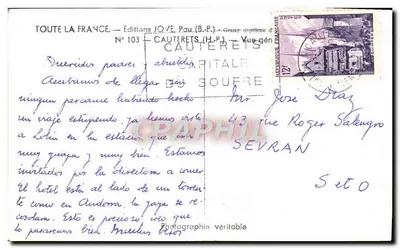 TOUTE LA FRANCE. — Editions JOVE, Pau (B.-P.)
N° 103 — CAUTERETS (H.-P.) — Vue gén
CAUTERETS
CAPITALE
DU SOUFRE
12F
Queridos padres y abuelita
Acabamos de llegar sin
ningun percance habiendo hecho
un viaje estupendo, ya hemos visto
a Lolin en la estacion que está
muy guapa y muy bien. Estamos
invitados por la directora a comer.
El hotel está al lado de un torren
te como en Andorra, la
cordam. Esto es precioso creo que
lo pasaremos bien. Muchos besos
Mr José Diaz
43 rue Roger Salengro
SEVRAN
S et O
CPAPHIL
Photographie véritable